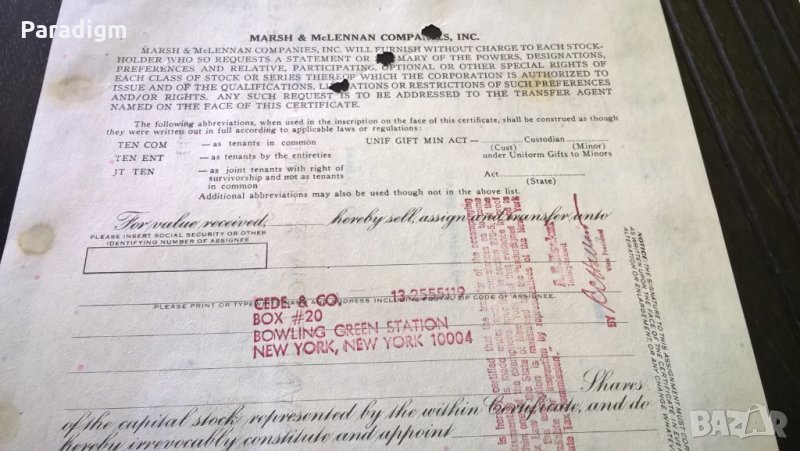 Paradigm
MARSH & McLENNAN COMPANIES, INC.
MARSH & McLENNAN COMPANIES, INC. WILL FURNISH WITHOUT CHARGE TO EACH STOCK-
HOLDER WHO SO REQUESTS A STATEMENT OR MARY OF THE POWERS, DESIGNATIONS,
PREFERENCES AND RELATIVE, PARTICIPATING, OPTIONAL OR OTHER SPECIAL RIGHTS OF
EACH CLASS OF STOCK OR SERIES THEREOF WHICH THE CORPORATION IS AUTHORIZED TO
ISSUE AND OF THE QUALIFICATIONS, LIMITATIONS OR RESTRICTIONS OF SUCH PREFERENCES
AND/OR RIGHTS. ANY SUCH REQUEST IS TO BE ADDRESSED TO THE TRANSFER AGENT
NAMED ON THE FACE OF THIS CERTIFICATE.
The following abbreviations, when used in the inscription on the face of this certificate, shall be construed as though
they were written out in full according to applicable laws or regulations:
TEN COM — as tenants in common UNIF GIFT MIN ACT — Custodian
(Cust) (Minor)
TEN ENT — as tenants by the entireties under Uniform Gifts to Minors
JT TEN — as joint tenants with right of Act
survivorship and not as tenants (State)
in common
Additional abbreviations may also be used though not in the above list.
For value received, hereby sell, assign and transfer unto
PLEASE INSERT SOCIAL SECURITY OR OTHER
IDENTIFYING NUMBER OF ASSIGNEE
CEDE & CO. 13-2555119
PLEASE PRINT OR TYPEWRITE NAME AND ADDRESS INCLUDING POSTAL ZIP CODE OF ASSIGNEE.
BOX #20
BOWLING GREEN STATION
NEW YORK, NEW YORK 10004
Shares
of the capital stock represented by the within Certificate, and do
hereby irrevocably constitute and appoint
Incorporated
BY
Vice President
NOTICE: THE SIGNATURE TO THIS ASSIGNMENT MUST COR
AS WRITTEN UPON THE FACE OF THE CERTIFICATE IN EVE
ALTERATION OR ENLARGEMENT OR ANY CHANGE WHATEVE
BAZAR